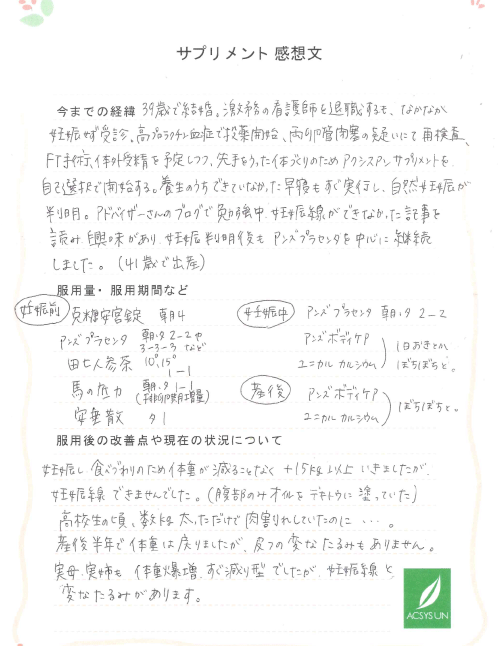 サプリメント 感想文
今までの経緯 39歳で結婚。激務の看護師を退職するも、なかなか
妊娠せず受診。高プロラクチン血症で投薬開始、両卵管閉塞の疑いにて再検査、
FT手術、体外受精を予定しつつ、先手をうった体づくりのためアクシスアンサプリメントを
自己選択で開始する。養生のうちできていなかった早寝もすぐ実行し、自然妊娠が
判明。アドバイザーさんのブログで勉強中、妊娠線ができなかった記事を
読み興味があり、妊娠判明後もアンズプラセンタを中心に継続
しました。(41歳で出産)
服用量・服用期間など
妊娠前 克糖安宮錠 朝4
アンズプラセンタ 朝・夕 2-2や 3-3-3 など
田七人参茶 10°,15° 1-1
馬の底力 朝・夕 1-1 (排卵期増量)
安亜散 夕1
妊娠中 アンズプラセンタ 朝・夕 2-2
アンズボディケア
ユニカルカルシウム
1日おきとか、ぼちぼちと。
産後 アンズボディケア
ユニカルカルシウム
ぼちぼちと。
服用後の改善点や現在の状況について
妊娠し食べづわりのため体重が減ることなく+15kg以上いきましたが、
妊娠線できませんでした。(腹部のみオイルをテキトウに塗っていた)
高校生の頃、数kg太っただけで肉割れしていたのに…。
産後半年で体重は戻りましたが、皮フの変なたるみもありません。
実母、実姉も体重爆増、すぐ減り型でしたが、妊娠線と
変なたるみがあります。
ACSYSUN